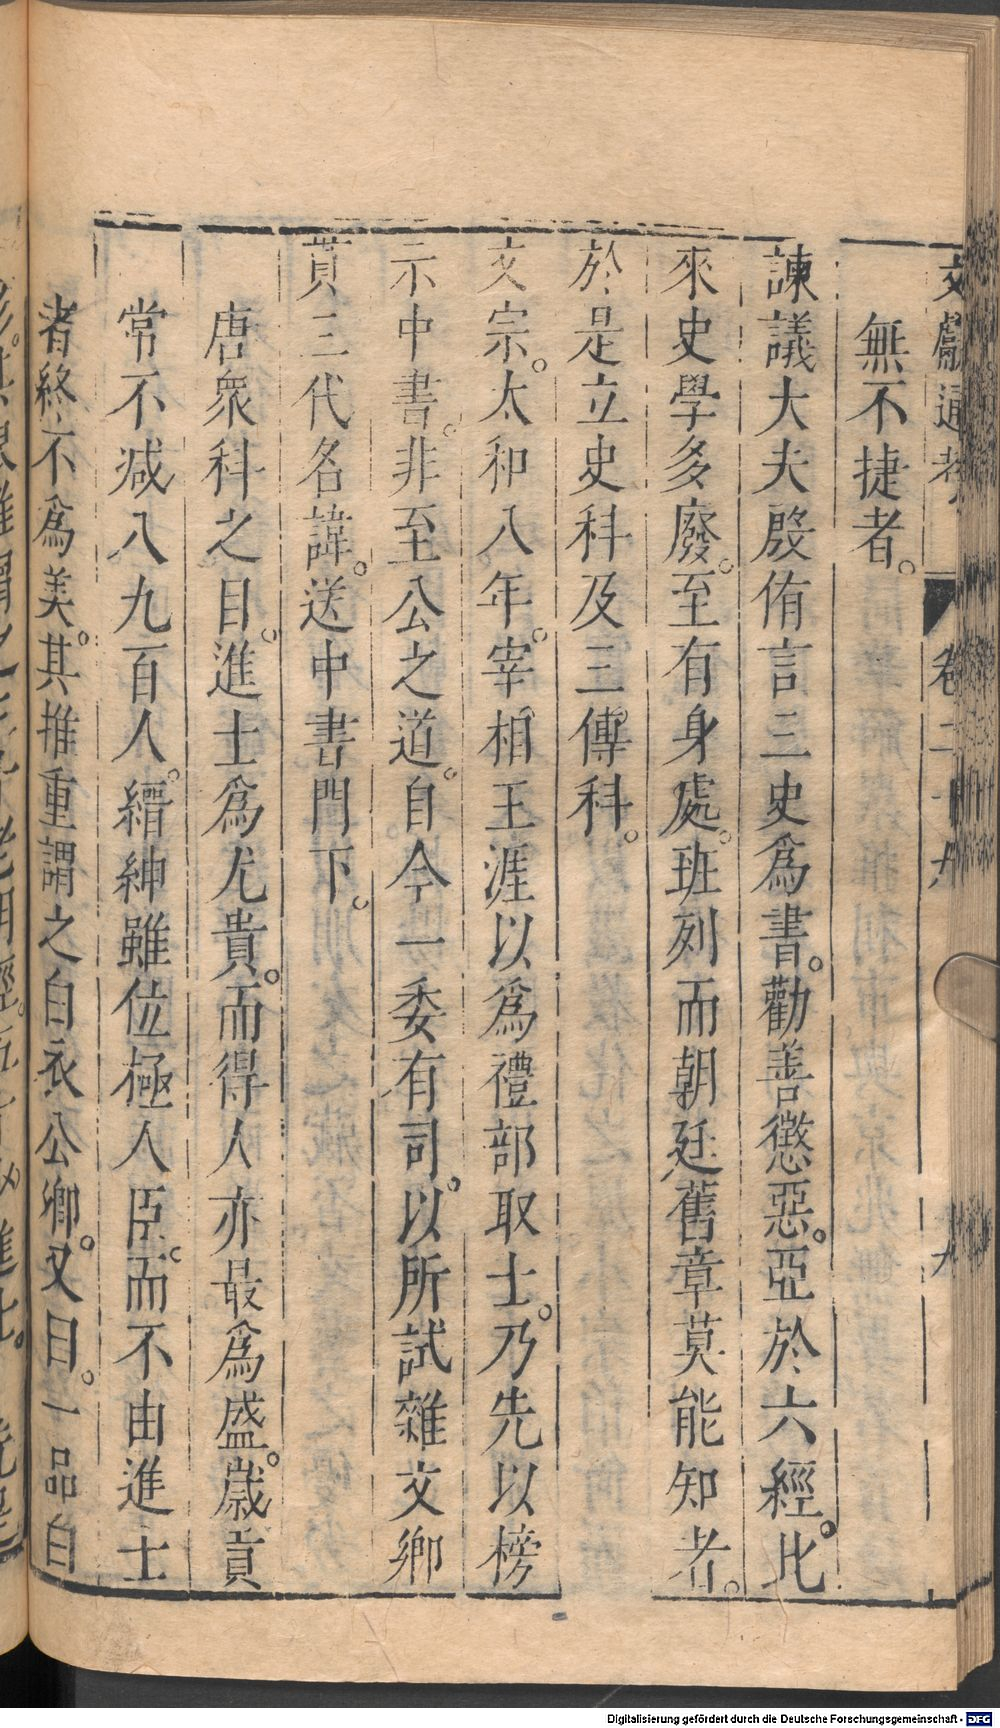 文獻通考 卷二十九 九
無不捷者。
諫議大夫殷侑言三史爲書。勸善懲惡。亞於六經。比
來史學多廢。至有身處。班列而朝廷舊章莫能知者。
於是立史科及三傳科。
文宗。太和八年。宰相王涯以爲禮部取士。乃先以榜
示中書。非至公之道。自今一委有司。以所試雜文鄉
貫三代名諱。送中書門下。
唐衆科之目。進士爲尤貴。而得人亦最爲盛。歲貢
常不减八九百人。縉紳雖位極人臣。而不由進士
者終不爲美。其推重謂之白衣公卿。又目。一品白
Digitalisierung gefördert durch die Deutsche Forschungsgemeinschaft - DFG